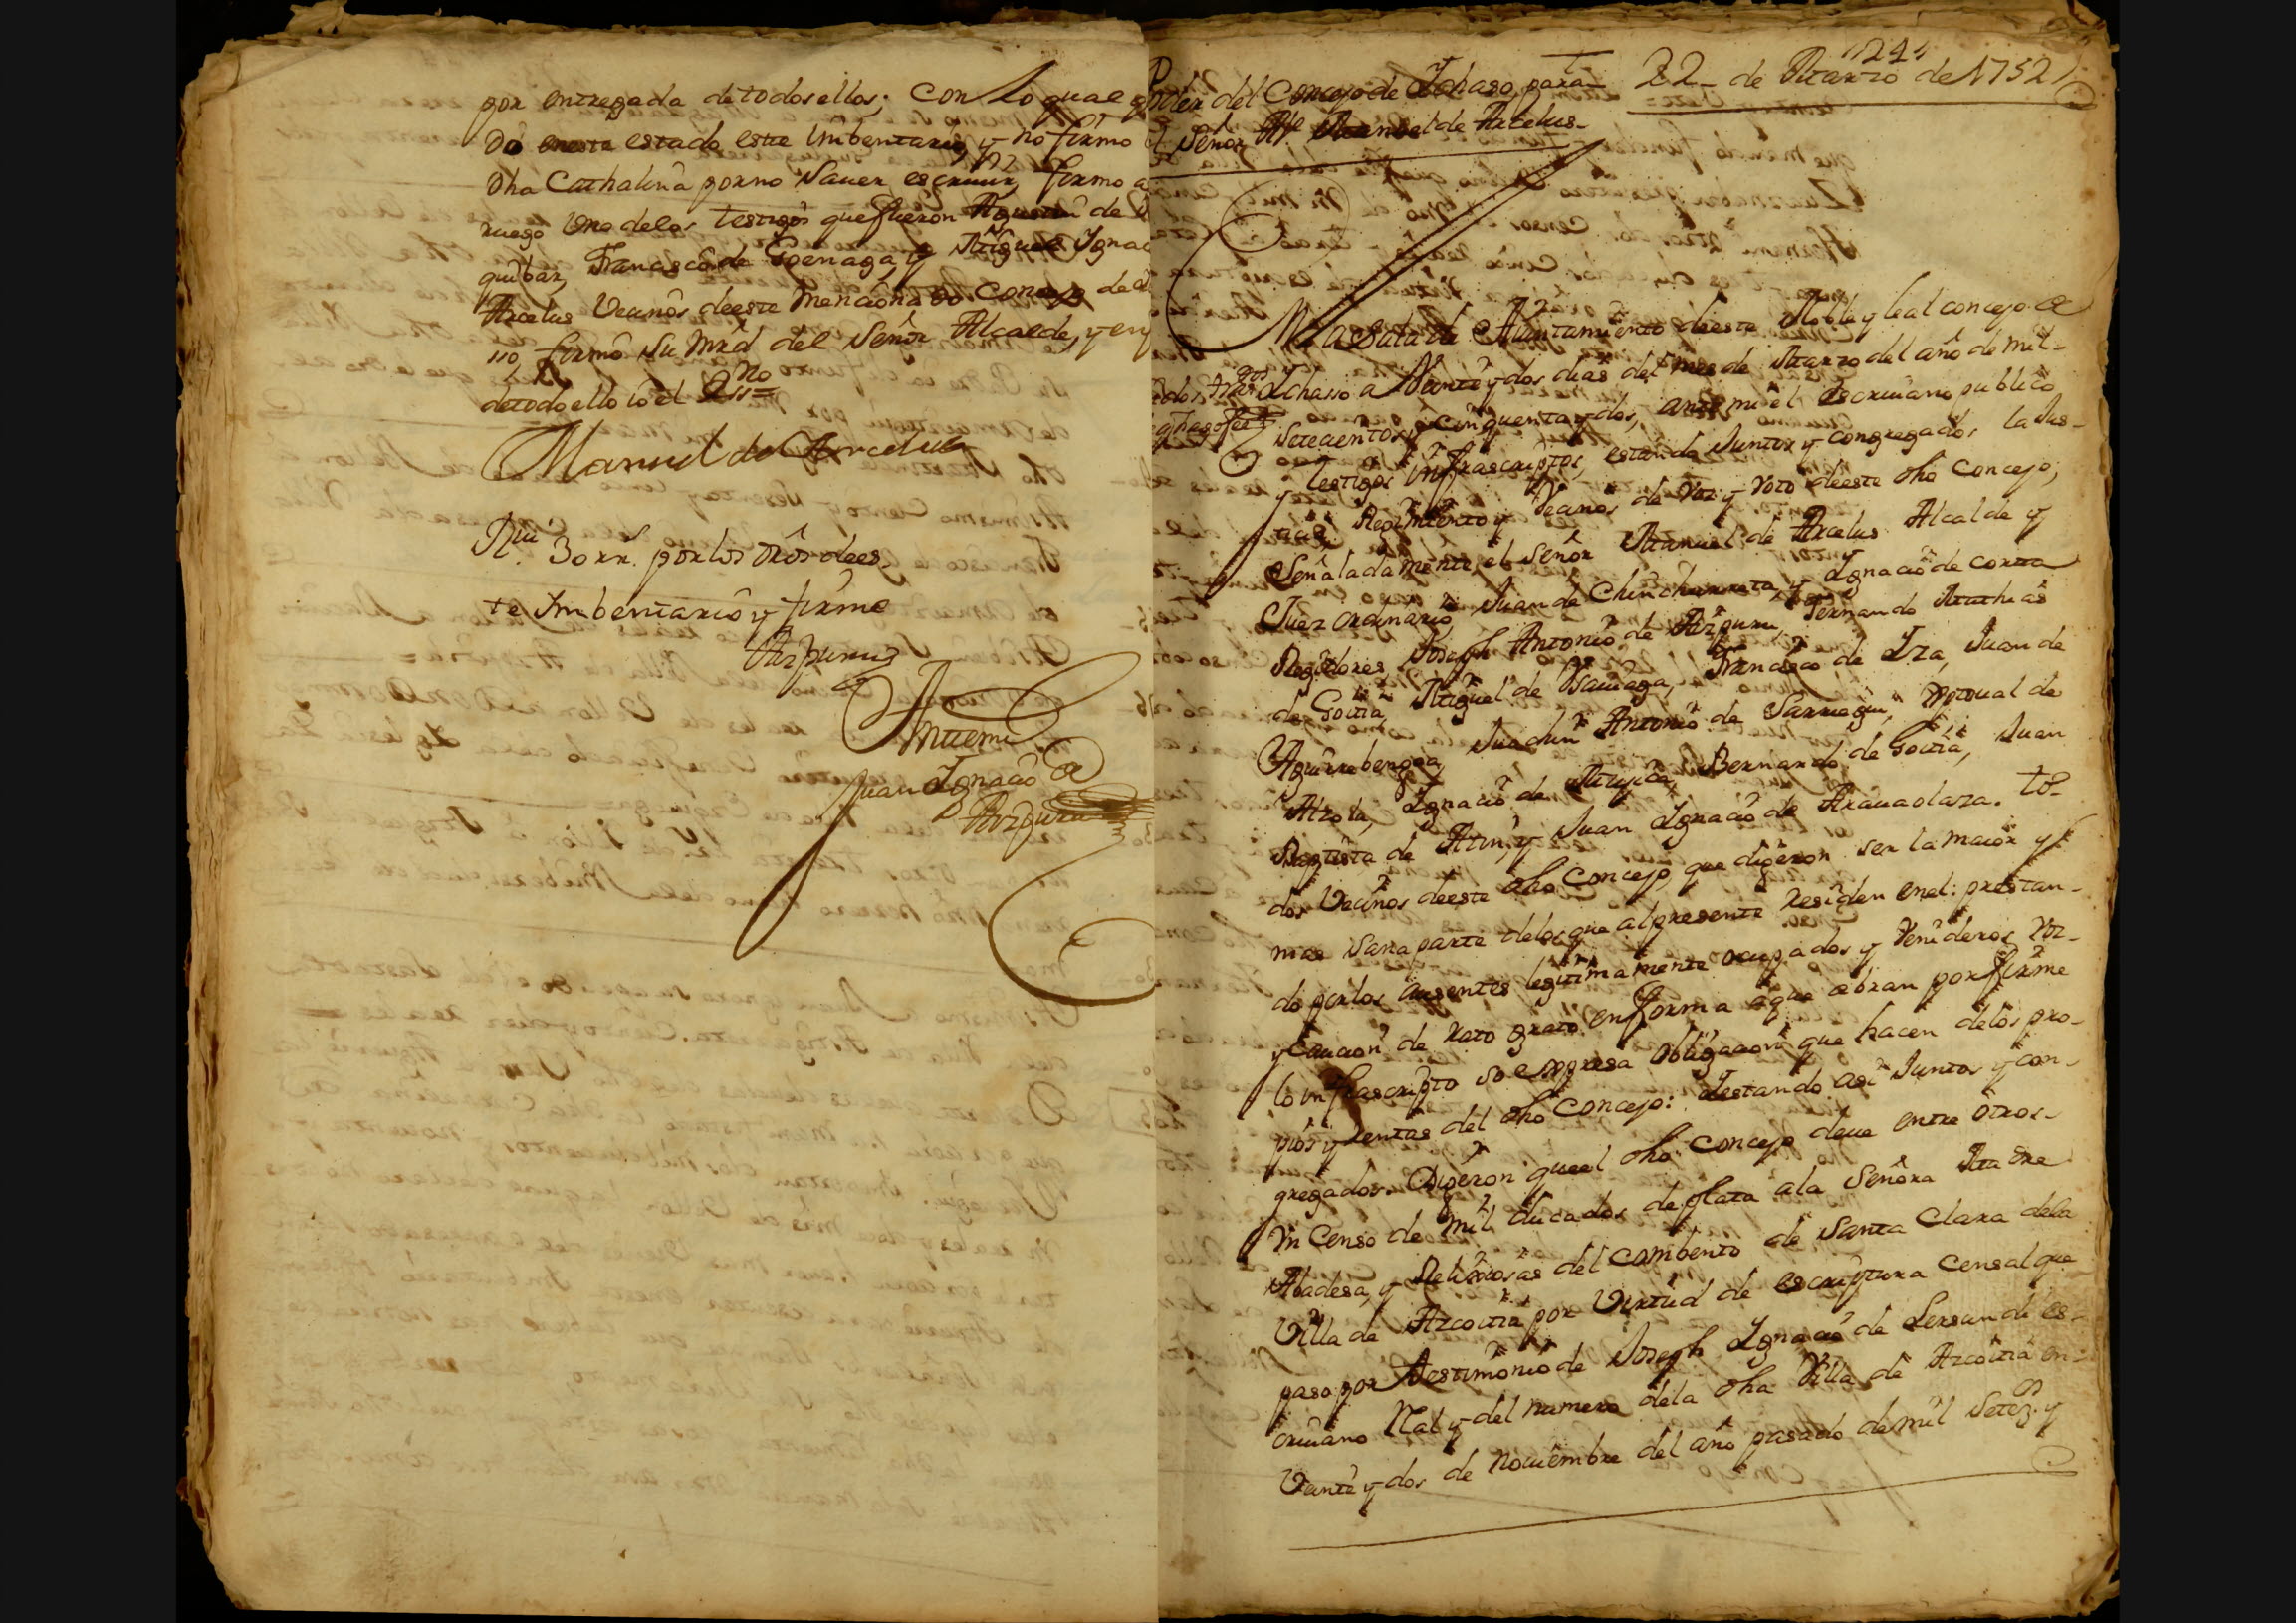 por entregada de todos ellos; Con lo qual q
dó en este estado este Imbentario, y no firmo
dha Cathalina por no Sauer escriuir, firmo a
ruego Uno de los testigos que fueron Agustin de
quibar, Francisco de Goenaga, y Miguel Ignac
Arcelus Vecinos de este mencionado Concejo de
110 firmó Su Mrd del Señor Alcalde, y en
de todo ello io el Ssno=
Manuel de Arcelus
Rui 30 rr. por los dros de es
te Imbentario y firme
Aizpuru
Antemi
Juan Ignacio de
Aizpuru
124
Poder del Concejo de Ichaso para
el Señor Alc. Manuel de Arcelus-
22- de Marzo de 1752
En la Sala de Ayuntamiento de este Noble y leal concejo de
Ichasso a Veinte y dos dias del mes de Marzo del año de mil-
Setecientos y cinquenta y dos, ante mi el escriuano publico
y testigos infrascriptos, estando Juntos y congregados la Jus-
ticia, Regimiento y Vecinos de Voz y Voto de este dho Concejo;
Señaladamente, el Señor Manuel de Arcelus Alcalde y
Juez ordinario Juan de Chinchurreta, y Ignacio de Corta
Regidores, Joseph Antonio de Aizpuru, Fernando Mathias
de Goitia, Miguel de Francisco de Iza, Juan de
Aguirrebengoa, Juachin Antonio de Sarriegui, Pasqual de
Alzola, Ignacio de Bernardo de Goitia, Juan
Baptista de Atin, y Juan Ignacio de Arauaolaza. to-
dos Vecinos de este dho Concejo, que digeron ser la maior y
mas Sana parte delos que al presente residen en el: prestan-
do por los ausentes legitimamente ocupados y Venideros Voz-
y Caucion de rato grato en forma a que abran por firme
lo infrascripto so expresa obligacion que hacen delos pro-
pios y rentas del dho Concejo: y estando asi Juntos y con-
gregados. Digeron que el dho Concejo deue entre otros-
Un Censo de mil ducados de plata ala Señora Madre
Abadesa, y Religiosas del combento de Santa Clara dela
Villa de Azcoitia por Virtud de escriptura Censal que
paso por Testimonio de Joseph Ignacio de Lersundi es-
criuano Ral y del numero dela dha Villa de Azcoitia en-
Vainte y dos de Nouiembre del año pasado de mil Setez. y